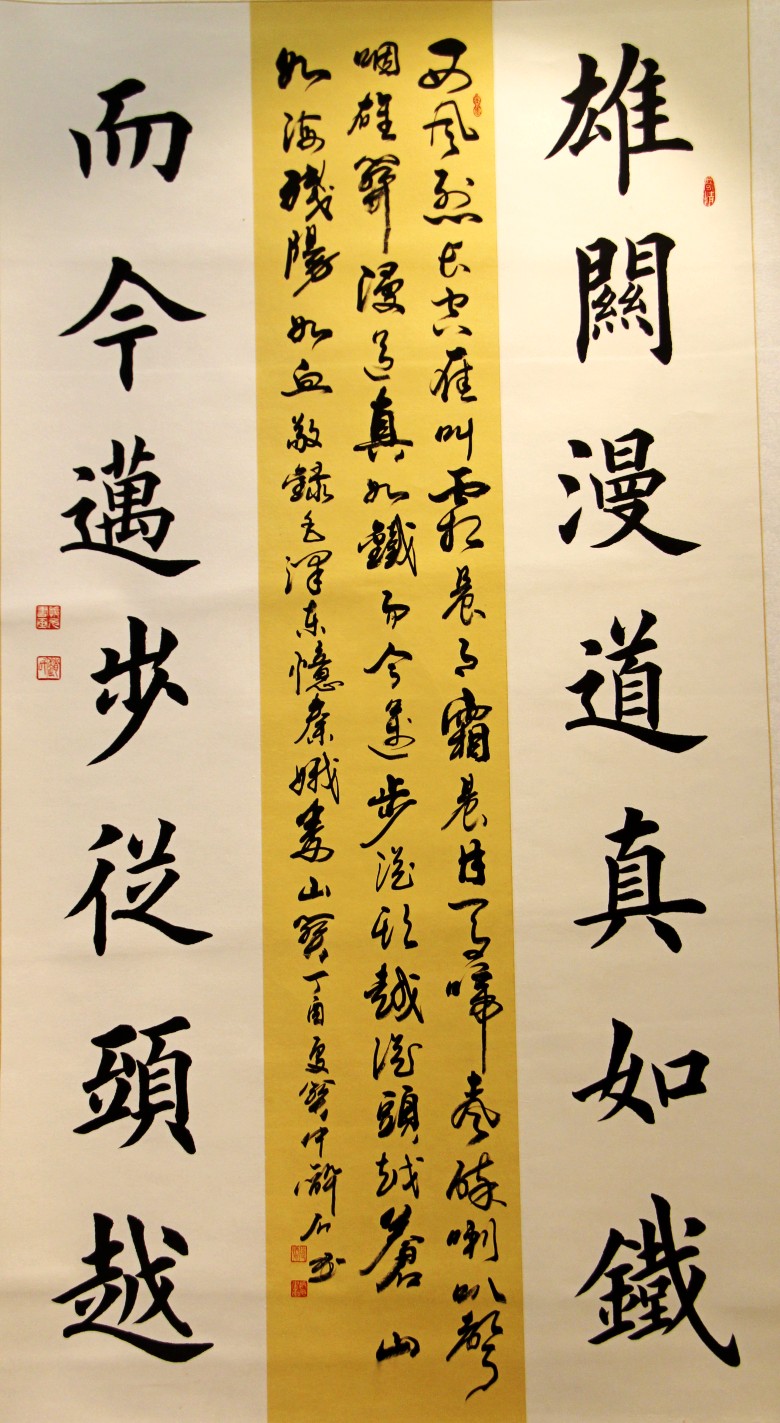 雄關漫道真如鐵
西風烈長空雁叫霜晨月霜晨月馬啼聲碎喇叭聲
咽雄關漫道真如鐵而今邁步從頭越從頭越蒼山
如海殘陽如血敬錄毛澤東憶秦娥婁山關丁酉夏石書
而今邁步從頭越